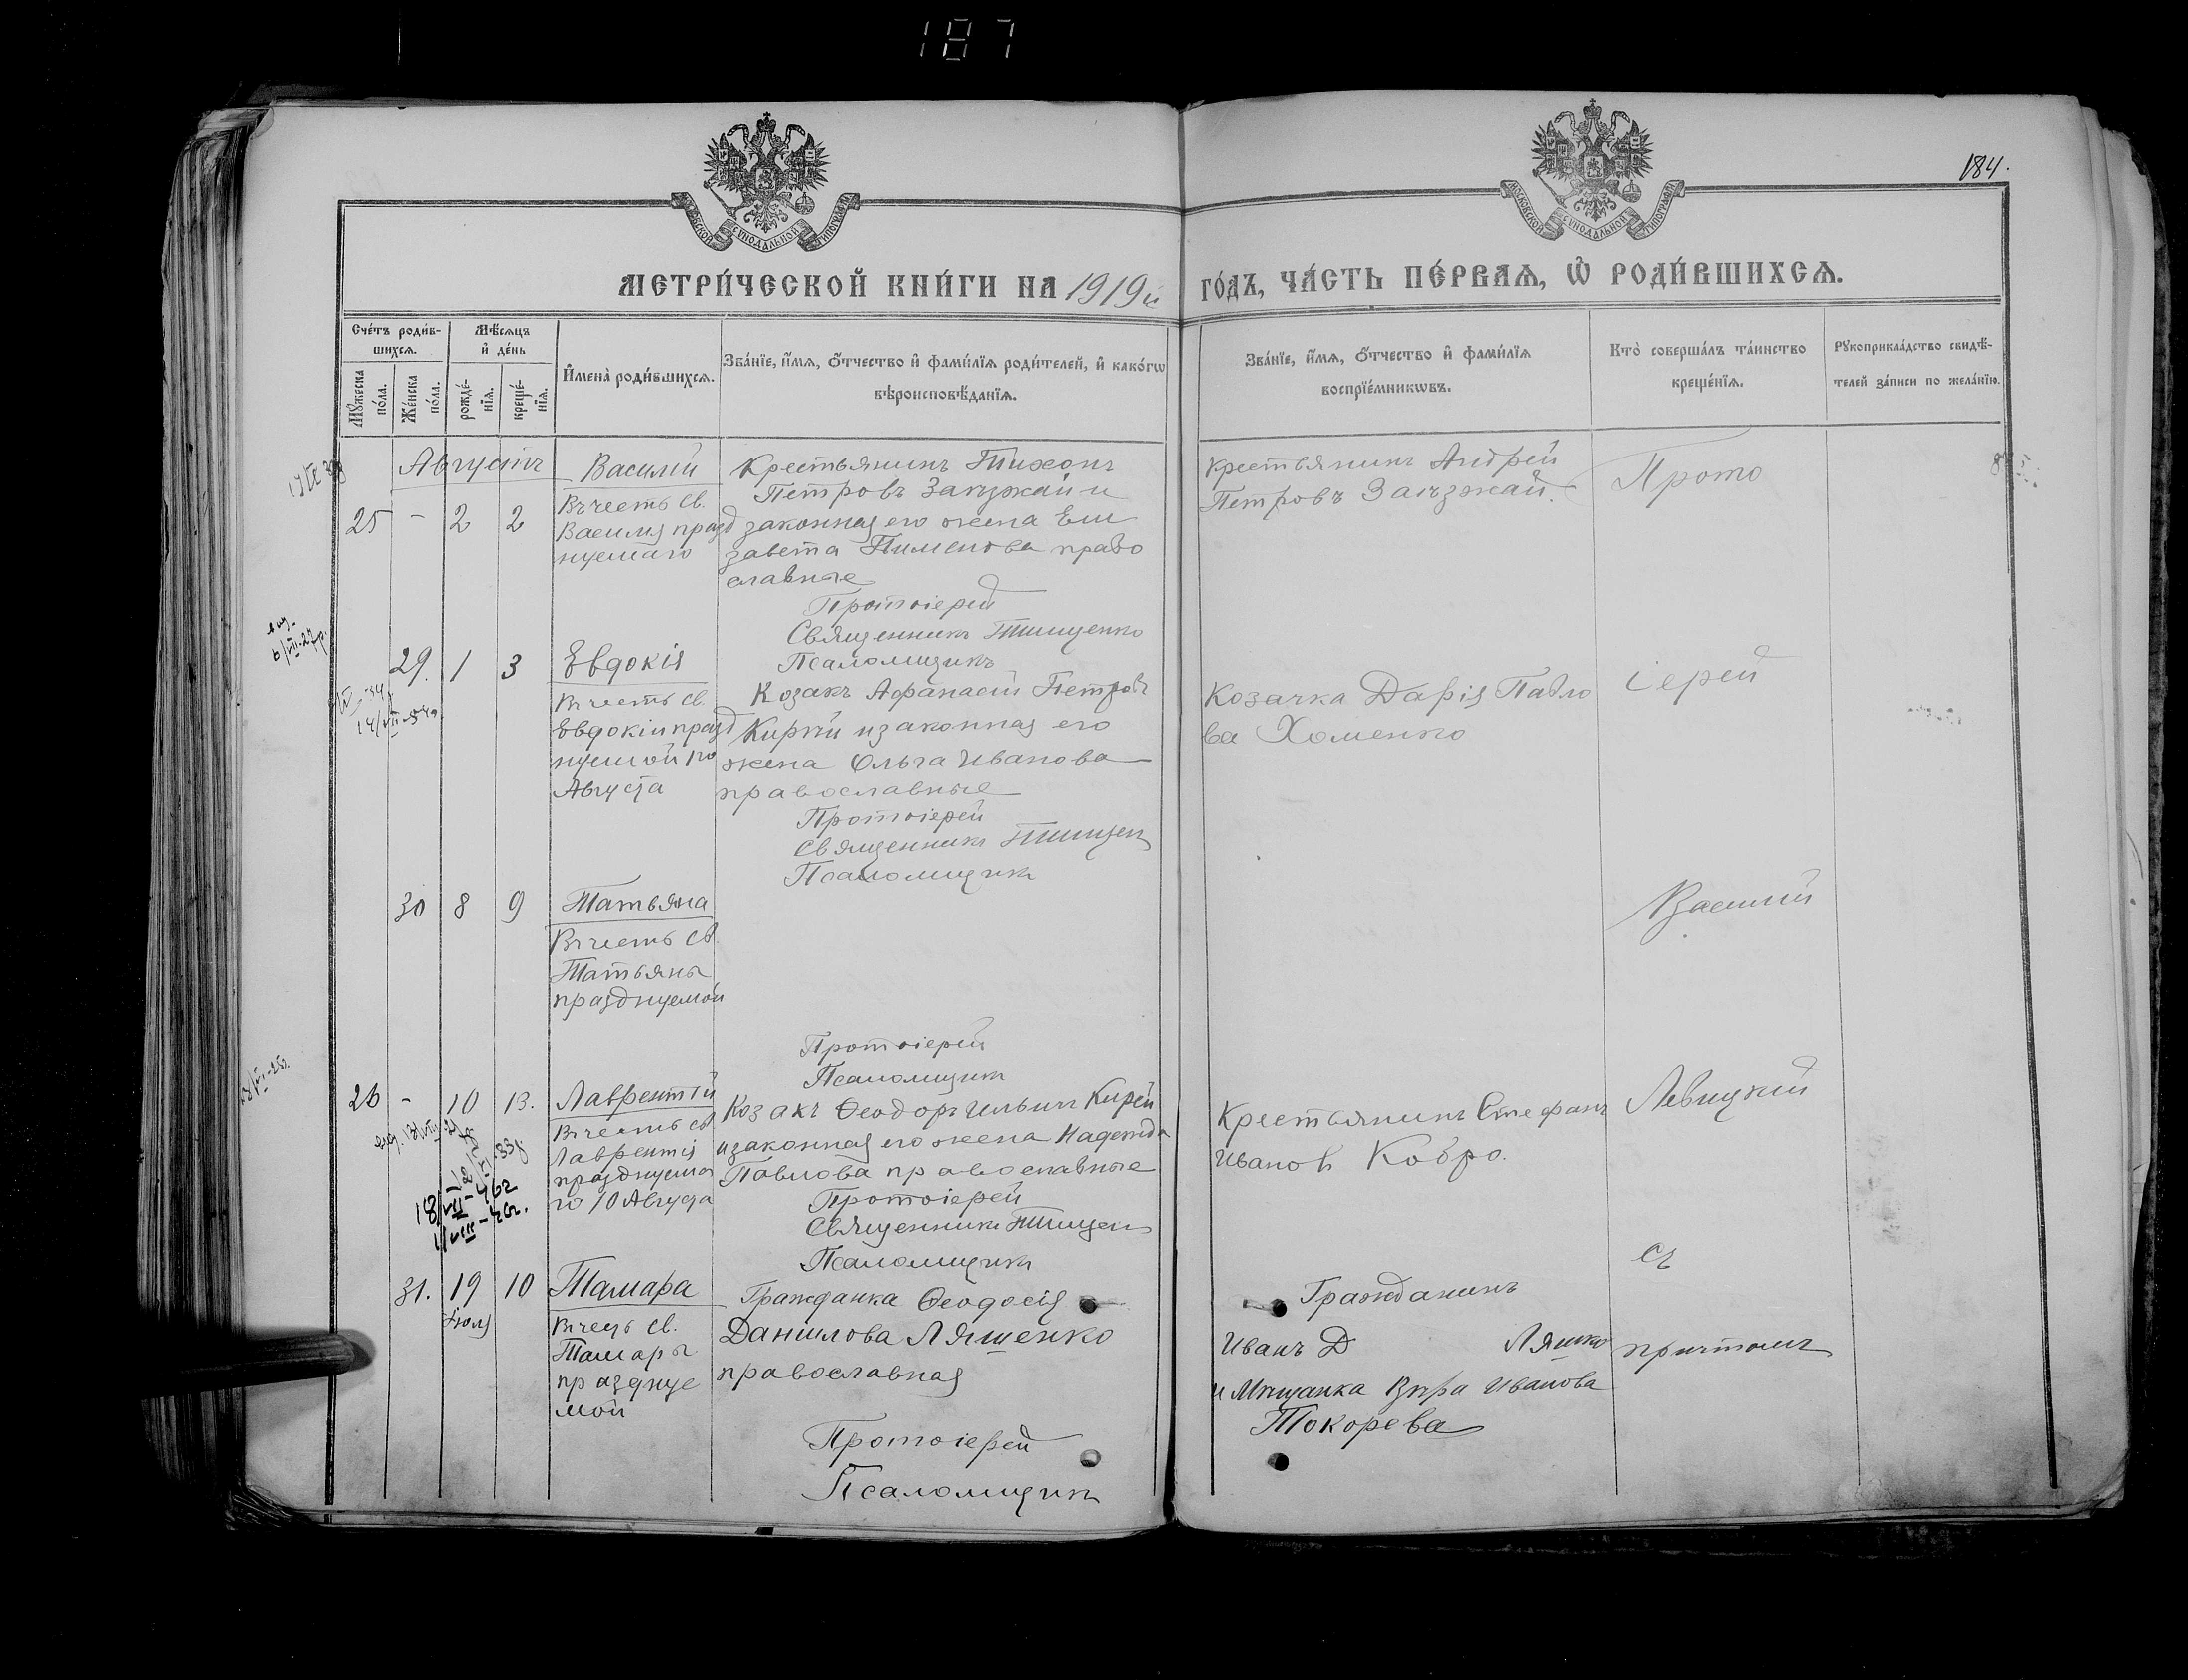 187
184.
МОСКОВСКОЙ СѴНОДАЛЬНОЙ ТИПОГРАФІИ
МЕТРИ́ЧЕСКОЙ КНИ́ГИ НА 1919й ГО́ДЪ, ЧА́СТЬ ПЕ́РВАѦ, Ѡ҆ РОДИ́ВШИХСѦ.
Сче́тъ роди́в-
шихсѧ.
Мꙋ́жеска по́ла.
Же́нска по́ла.
Мѣ́сѧцъ
и҆ де́нь
рожде́-
нїѧ.
креще́-
нїѧ.
И҆мена̀ роди́вшихсѧ.
Зва́нїе, и҆́мѧ, ѻ҆́тчество и҆ фами́лїѧ роди́телей, и҆ како́гѡ
вѣроисповѣ́данїѧ.
Зва́нїе, и҆́мѧ, ѻ҆́тчество и҆ фами́лїѧ
воспрїе́мникѡвъ.
Кто̀ соверша́лъ та́инство
креще́нїѧ.
Рꙋкоприкла́дство свидѣ́-
телей за́писи по жела́нїю.
Августъ
25 - 2 2
Василій
Въ честь св.
Василія празд
нуемаго
Крестьянинъ Тихонъ
Петровъ Заѣзжай и
законная его жена Ели
завета Пименова право
славные
Протоіерей
Священникъ Тищенко
Псаломщикъ
Крестьянинъ Андрей
Петровъ Заѣзжай.
Прото
29. 1 3
Евдокія
Въ честь св.
Евдокіи празд
нуемой 1го
Августа
Козакъ Афанасій Петровъ
Кирѣй и законная его
жена Ольга Иванова
православные
Протоіерей
Священникъ Тищен
Псаломщикъ
Козачка Дарія Павло
ва Хоменко
іерей
30 8 9
Татьяна
Въ честь св.
Татьяны
празднуемой
Протоіерей
Псаломщикъ
Василій
26 - 10 13.
Лаврентій
Въ честь св
Лаврентія
празднуема
го 10 Августа
Козакъ Ѳеодоръ Ильинъ Кирѣй
и законная его жена Надежда
Павлова православные
Протоіерей
Священникъ Тищен
Псаломщикъ
Крестьянинъ Стефанъ
Ивановъ Кобро.
Левицкій
съ
31. 19 10
Іюля
Тамара
Въ честь св.
Тамары
празднуе
мой
Гражданка Ѳеодосія
Данилова Ляшенко
православная
Протоіерей
Псаломщикъ
Гражданинъ
Иванъ Д Ляшко
и Мѣщанка Вѣра Иванова
Токорева
причтомъ